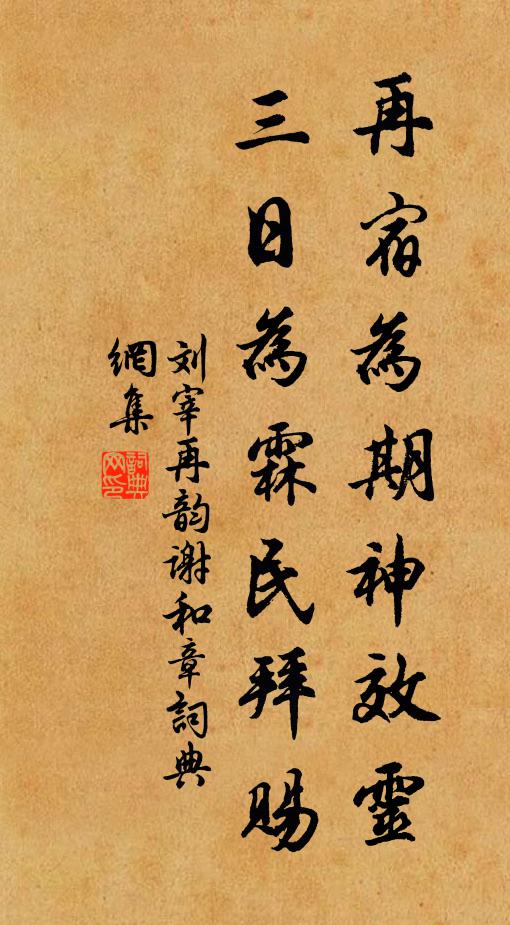 再宿為期神效靈
三日為霖民拜賜
刘宰再韵谢和章詞典
網集
詞典
网印